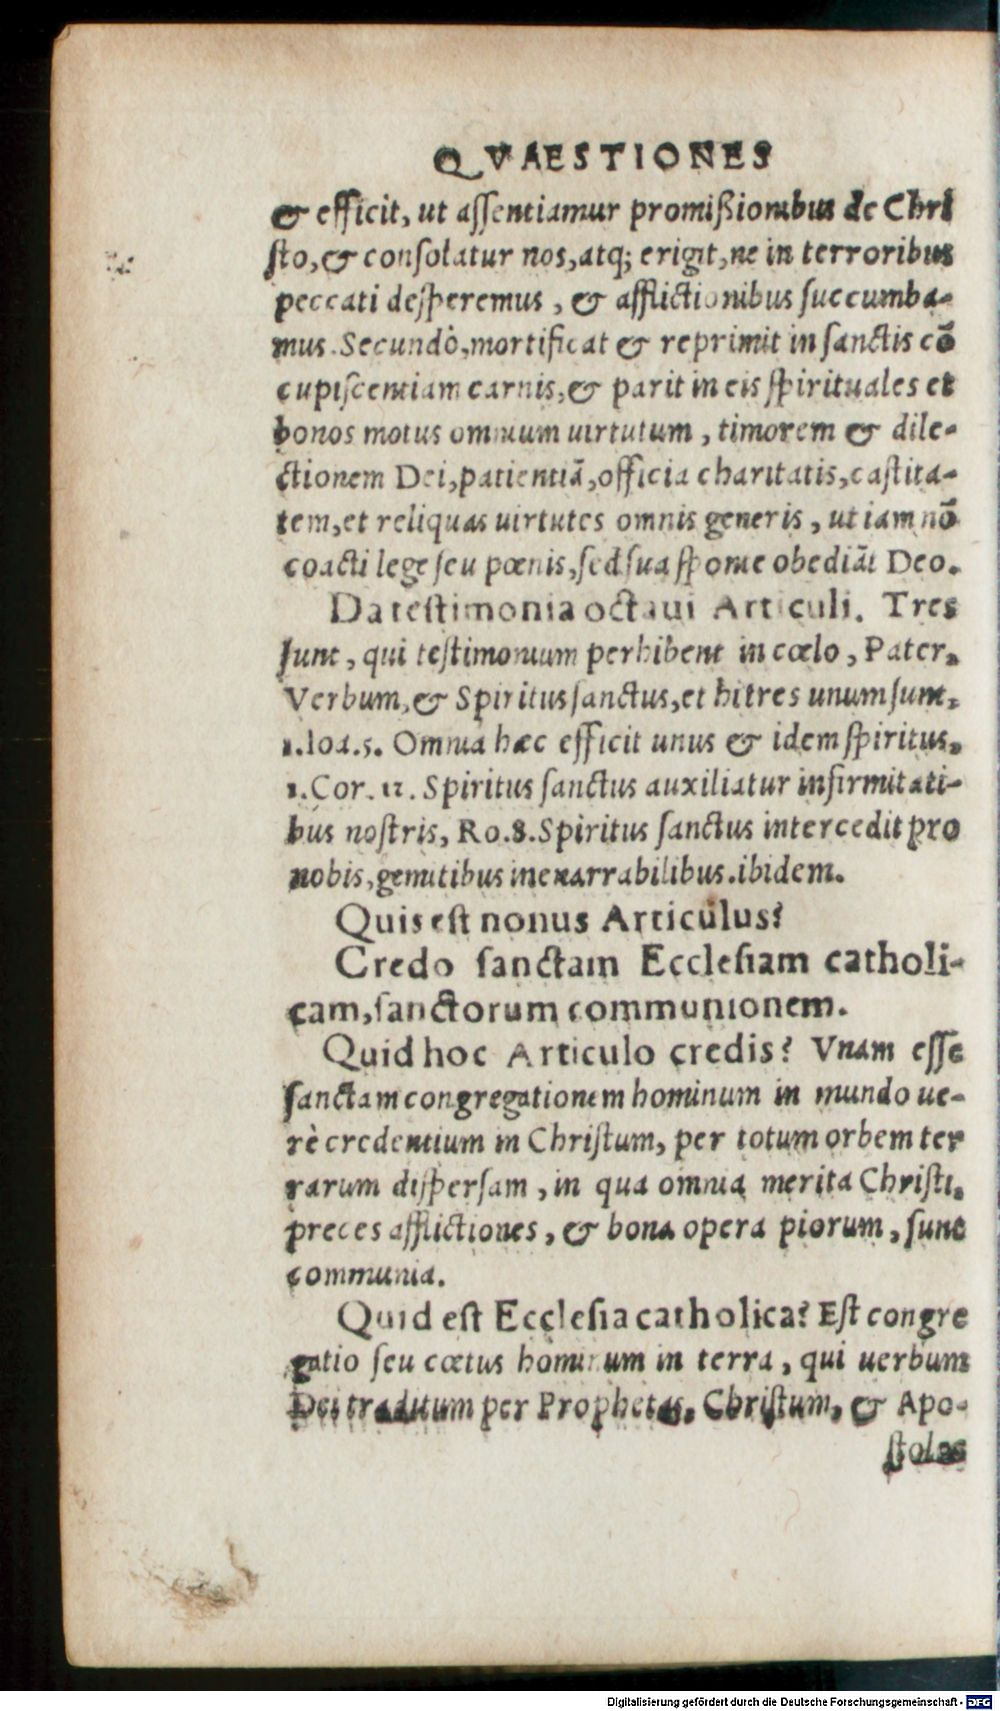 QVAESTIONES
& efficit, ut aſſentiamur promißionibus de Chri
ſto, & conſolatur nos, atq; erigit, ne in terroribus
peccati deſperemus, & afflictionibus ſuccumba-
mus. Secundò, mortificat & reprimit in ſanctis cō
cupiſcentiam carnis, & parit in eis ſpirituales et
bonos motus omnium uirtutum, timorem & dile-
ctionem Dei, patientiā, officia charitatis, caſtita-
tem, et reliquas uirtutes omnis generis, ut iam nō
coacti lege ſeu pœnis, ſed ſua ſponte obediāt Deo.
Da teſtimonia octaui Articuli. Tres
ſunt, qui teſtimonium perhibent in cœlo, Pater,
Verbum, & Spiritus ſanctus, et hi tres unum ſunt,
1. Ioa. 5. Omnia hæc efficit unus & idem ſpiritus,
1. Cor. 12. Spiritus ſanctus auxiliatur infirmitati-
bus noſtris, Ro. 8. Spiritus ſanctus intercedit pro
nobis, gemitibus inenarrabilibus. ibidem.
Quis eſt nonus Articulus?
Credo ſanctam Eccleſiam catholi-
cam, ſanctorum communionem.
Quid hoc Articulo credis? Vnam eſſe
ſanctam congregationem hominum in mundo ue-
rè credentium in Chriſtum, per totum orbem ter
rarum diſperſam, in qua omnia merita Chriſti,
preces afflictiones, & bona opera piorum, ſunt
communia.
Quid eſt Eccleſia catholica? Eſt congre
gatio ſeu cœtus hominum in terra, qui uerbum
Dei traditum per Prophetas, Chriſtum, & Apo-
ſtolos
Digitalisierung gefördert durch die Deutsche Forschungsgemeinschaft - DFG